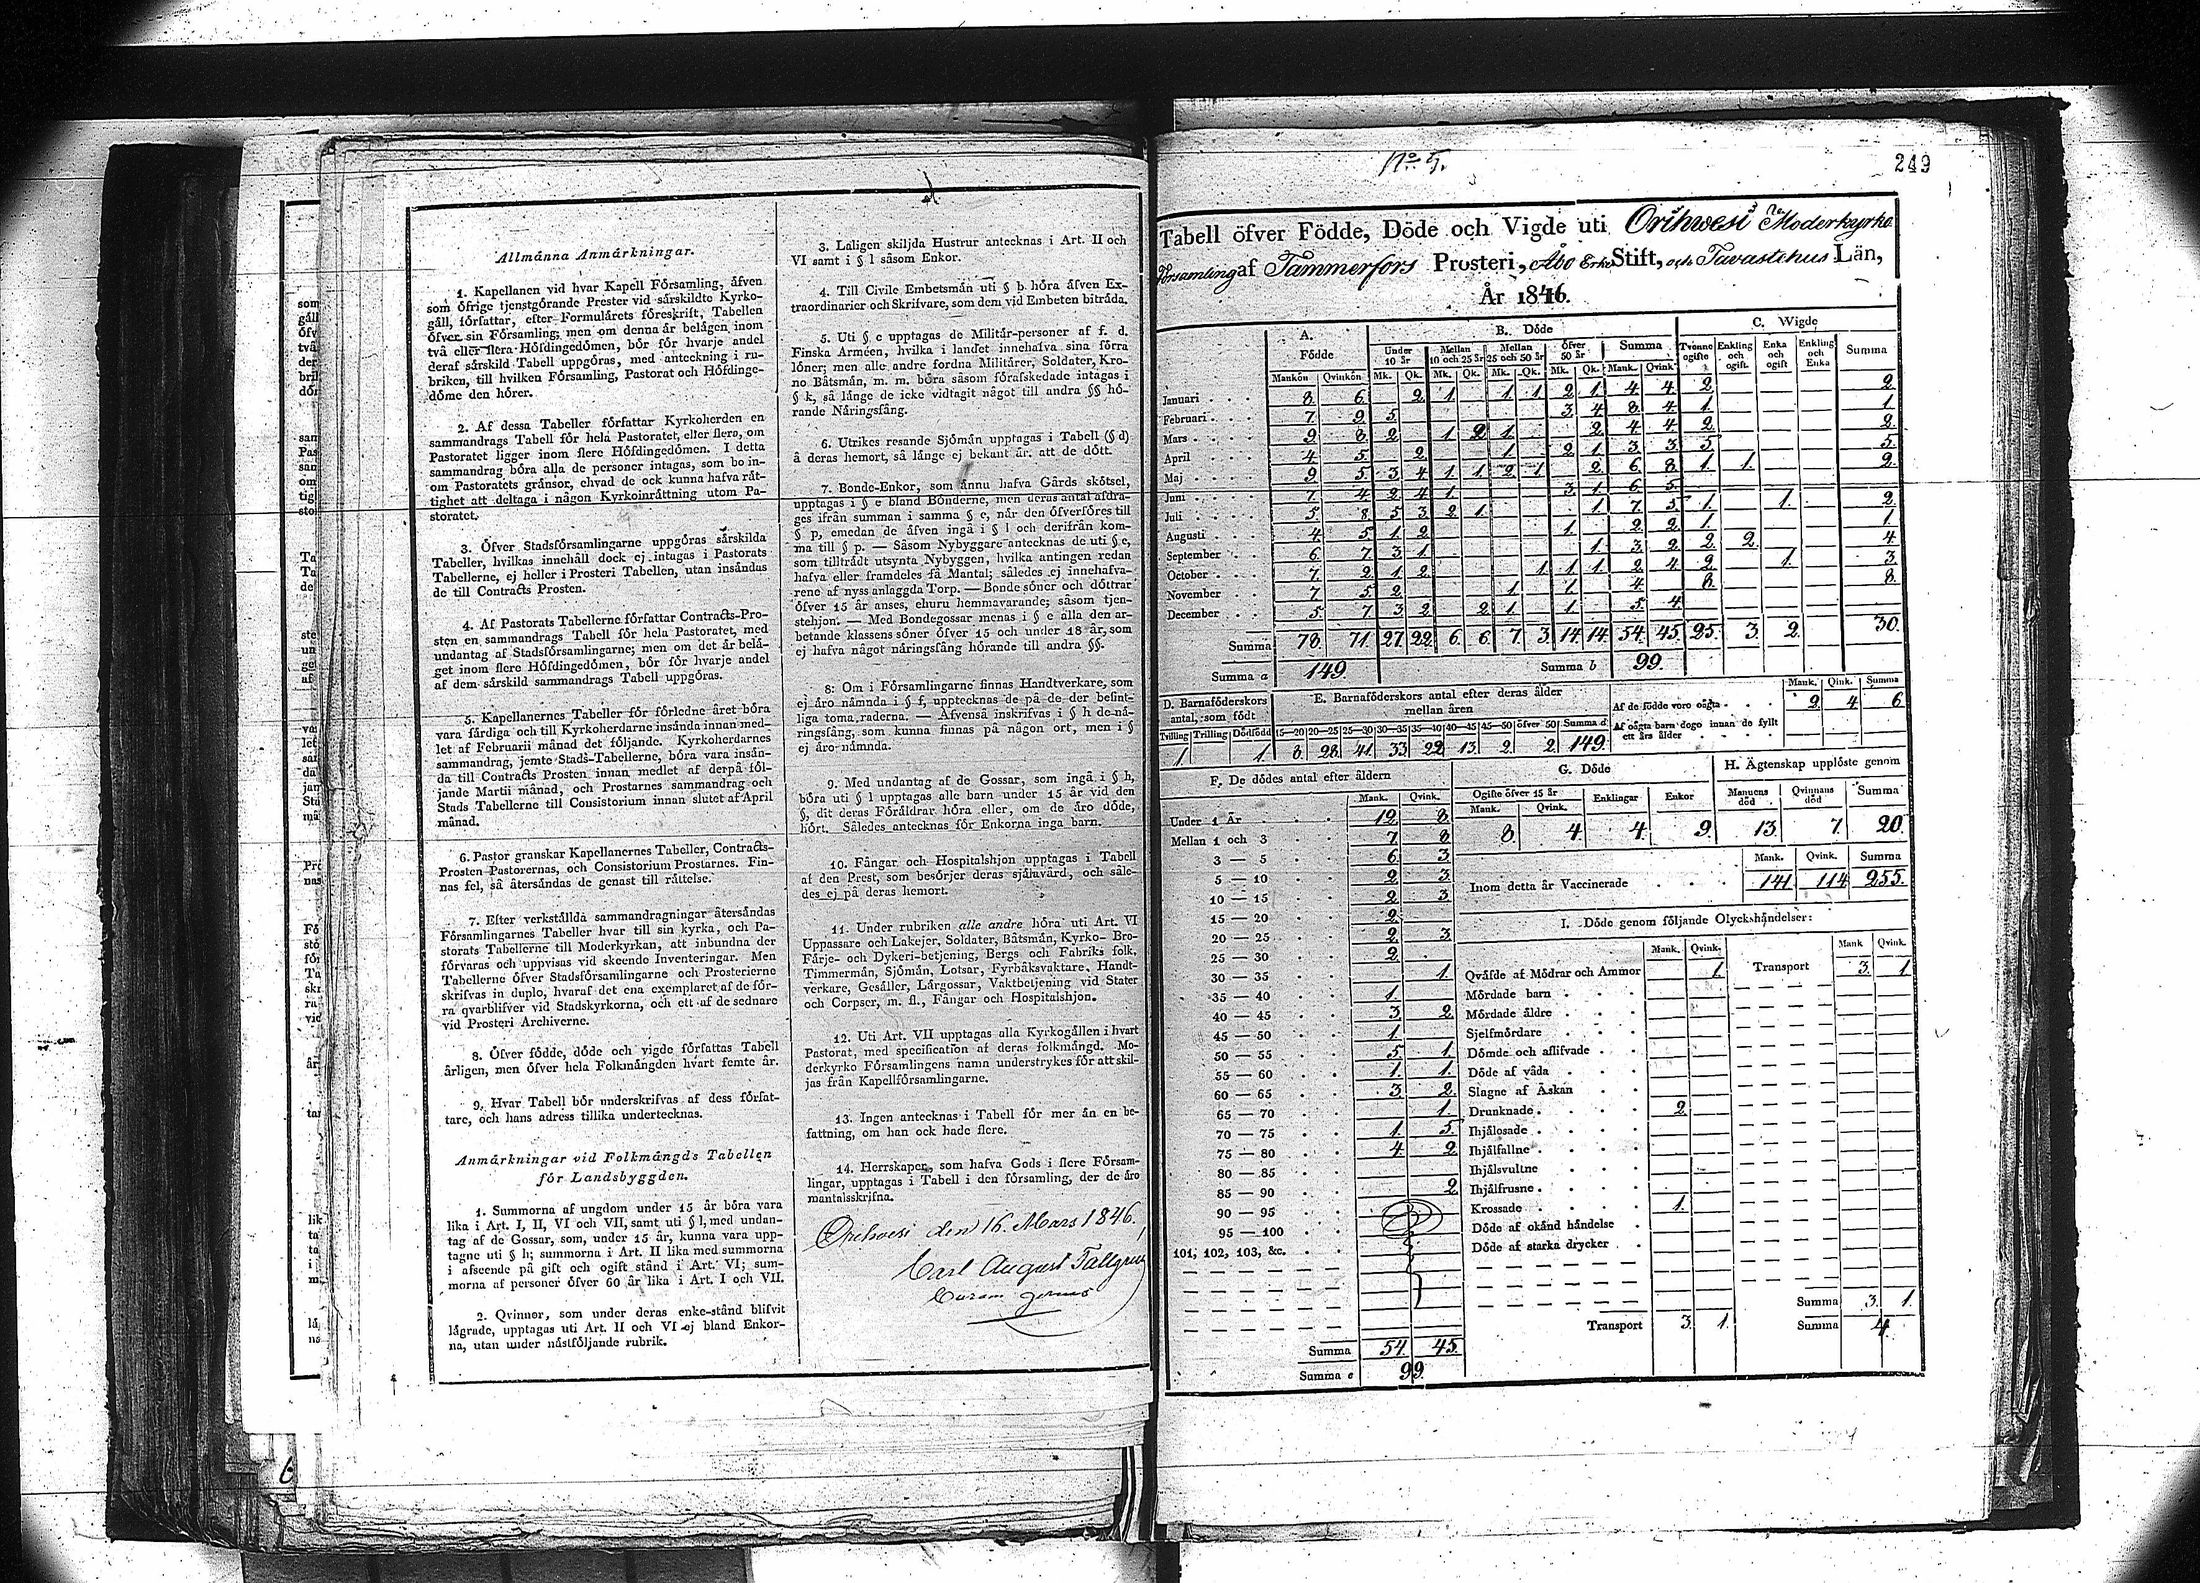 Allmänna Anmärkningar.
1. Kapellanen vid hvar Kapell Församling, åfven
som öfrige tjenstgörande Prester vid sårskildte Kyrko-
gåll, författar, efter Formulårets föreskrift, Tabellen
öfver sin Församling; men om denna år belågen inom
två eller flera Höfdingedömen, bör för hvarje andel
deraf sårskild Tabell uppgöras, med anteckning i ru-
briken, till hvilken Församling, Pastorat och Höfdinge-
döme den hörer.
2. Af dessa Tabeller författar Kyrkoherden en
sammandrags Tabell för hela Pastoratet, eller flera, om
Pastoratet ligger inom flere Höfdingedömen. I detta
sammandrag böra alla de personer intagas, som bo in-
om Pastoratets grånsor, ehvad de ock kunna hafva råt-
tighet att deltaga i någon Kyrkoinråttning utom Pa-
storatet.
3. Öfver Stadsförsamlingarne uppgöras sårskilda
Tabeller, hvilkas innehåll dock ej intagas i Pastorats
Tabellerne, ej heller i Prosteri Tabellen, utan insåndas
de till Contracts Prosten.
4. Af Pastorats Tabellerne författar Contracts-Pro-
sten en sammandrags Tabell för hela Pastoratet, med
undantag af Stadsförsamlingarne; men om det år belå-
get inom flere Höfdingedömen, bör för hvarje andel
af dem sårskild sammandrags Tabell uppgöras.
5. Kapellanernes Tabeller för förledne året böra
vara fårdiga och till Kyrkoherdarne insånda innan med-
let af Februarii månad det följande. Kyrkoherdarnes
sammandrag, jemte Stads-Tabellerne, böra vara insån-
da till Contracts Prosten innan medlet af derpå föl-
jande Martii månad, och Prostarnes sammandrag och
Stads Tabellerne till Consistorium innan slutet af April
månad.
6. Pastor granskar Kapellanernes Tabeller, Contracts-
Prosten Pastorernas, och Consistorium Prostarnes. Fin-
nas fel, så återsåndas de genast till råttelse.
7. Efter verkstållda sammandragningar återsåndas
Församlingarnes Tabeller hvar till sin kyrka, och Pa-
storats Tabellerne till Moderkyrkan, att inbundna der
förvaras och uppvisas vid skeende Inventeringar. Men
Tabellerne öfver Stadsförsamlingarne och Prosterierne
skrifvas in duplo, hvaraf det ena exemplaret af de för-
ra qvarblifver vid Stadskyrkorna, och ett af de sednare
vid Prosteri Archiverne.
8. Öfver födde, döde och vigde författas Tabell
årligen, men öfver hela Folkmångden hvart femte år.
9. Hvar Tabell bör underskrifvas af dess förfat-
tare, och hans adress tillika undertecknas.
Anmärkningar vid Folkmångds Tabellen
för Landsbyggden.
1. Summorna af ungdom under 15 år böra vara
lika i Art. I, II, VI och VII, samt uti § l, med undan-
tag af de Gossar, som, under 15 år, kunna vara upp-
tagne uti § h; summorna i Art. II lika med summorna
i afseende på gift och ogift stånd i Art. VI; sum-
morna af personer öfver 60 år lika i Art. I och VII.
2. Qvinnor, som under deras enke-stånd blifvit
lågrade, upptagas uti Art. II och VI ej bland Enkor-
na, utan under nåstföljande rubrik.
3. Laligen skiljda Hustrur antecknas i Art. II och
VI samt i § l såsom Enkor.
4. Till Civile Embetsmån uti § b höra åfven Ex-
traordinarier och Skrifvare, som dem vid Embeten bitråda.
5. Uti § c upptagas de Militår-personer af f. d.
Finska Arméen, hvilka i landet innehafva sina förra
löner; men alle andre fordna Militårer, Soldater, Kro-
no Båtsmån, m. m. böra såsom förafskedade intagas i
§ k, så långe de icke vidtagit något till andra §§ hö-
rande Nåringsfång.
6. Utrikes resande Sjömån upptagas i Tabell (§ d)
å deras hemort, så långe ej bekant år, att de dött.
7. Bonde-Enkor, som ånnu hafva Gårds skötsel,
upptagas i § e bland Bönderne, men deras antal afdra-
ges ifrån summan i samma § e, når den öfverföres till
§ p, emedan de åfven ingå i § l och derifrån kom-
ma till § p. — Såsom Nybyggare antecknas de uti § e,
som tilltrådt utsynta Nybyggen, hvilka antingen redan
hafva eller framdeles få Mantal; således ej innehafva-
rene af nyss anlaggda Torp. — Bonde söner och döttrar
öfver 15 år anses, ehuru hemmavarande; såsom tjen-
stehjon. — Med Bondegossar menas i § e alla den ar-
betande klassens söner öfver 15 och under 18 år, som
ej hafva något nåringsfång hörande till andra §§.
8: Om i Församlingarne finnas Handtverkare, som
ej åro nåmnda i § f, upptecknas de på de der befint-
liga toma raderna. — Åfvenså inskrifvas i § h de nå-
ringsfång, som kunna finnas på någon ort, men i §
ej åro nåmnda.
9. Med undantag af de Gossar, som ingå i § h,
böra uti § l upptagas alle barn under 15 år vid den
§, dit deras Föråldrar höra eller, om de åro döde,
hört. Således antecknas för Enkorna inga barn.
10. Fångar och Hospitalshjon upptagas i Tabell
af den Prest, som besörjer deras sjålavård, och såle-
des ej på deras hemort.
11. Under rubriken alle andre höra uti Art. VI
Uppassare och Lakejer, Soldater, Båtsmån, Kyrko- Bro-
Fårje- och Dykeri-betjening, Bergs och Fabriks folk,
Timmermån, Sjömån, Lotsar, Fyrbåksvaktare, Handt-
verkare, Gesåller, Lårgossar, Vaktbetjening vid Stater
och Corpser, m. fl., Fångar och Hospitalshjon.
12. Uti Art. VII upptagas alla Kyrkogållen i hvart
Pastorat, med specification af deras folkmångd. Mo-
derkyrko Församlingens namn understrykes för att skil-
jas från Kapellförsamlingarne.
13. Ingen antecknas i Tabell för mer ån en be-
fattning, om han ock hade flere.
14. Herrskaper, som hafva Gods i flere Försam-
lingar, upptagas i Tabell i den församling, der de åro
mantalsskrifna.
Orihvesi den 16. Mars 1846.
Carl August Tallgren
No 5.
249
Tabell öfver Födde, Döde och Vigde uti Orihwesi Moderkyrko
Församling af Tammerfors Prosteri, Åbo Erke Stift, och Tavastehus Län,
År 1846.
A. Födde B. Döde C. Wigde
Under 10 år Mellan 10 och 25 år Mellan 25 och 50 år Öfver 50 år Summa Tvenne ogifte Enkling och ogift Enka och ogift Enkling och Enka Summa
Mankön Qvinkön Mk. Qk. Mk. Qk. Mk. Qk. Mk. Qk. Mank. Qvink.
Januari 8. 6. 2. 1. 1. 1. 2. 1. 4. 4. 2. 2.
Februari 7. 9. 5. 3. 4. 8. 4. 1. 1.
Mars 9. 8. 2. 1. 2. 1. 2. 4. 4. 2. 2.
April 4. 5. 2. 1. 2. 1. 3. 3. 5. 5.
Maj 9. 5. 3. 4. 1. 1. 2. 1. 2. 6. 8. 1. 1. 2.
Juni 7. 4. 2. 4. 1. 3. 1. 6. 5.
Juli 5. 8. 5. 3. 2. 1. 1. 7. 5. 1. 1. 2.
Augusti 4. 5. 1. 2. 1. 2. 2. 1. 1.
September 6. 7. 3. 1. 1. 3. 2. 2. 2. 4.
October 7. 2. 1. 2. 1. 1. 1. 2. 4. 2. 1. 3.
November 7. 5. 2. 1. 1. 4. 8. 8.
December 5. 7. 3. 2. 2. 1. 1. 5. 4.
Summa 78. 71. 27. 22. 6. 6. 7. 3. 14. 14. 54. 45. 25. 3. 2. 30.
Summa a 149. Summa b 99.
D. Barnaföderskors antal, som födt
Tvilling Trilling Dödfödd
1. 1.
E. Barnaföderskors antal efter deras ålder mellan åren
15—20 20—25 25—30 30—35 35—40 40—45 45—50 öfver 50 Summa d
8. 28. 41. 33. 22. 13. 2. 2. 149.
Mank. Qink. Summa
Af de födde voro oågta 2. 4. 6.
Af oågta barn dogo innan de fyllt
ett års ålder
F. De dödes antal efter åldern
Mank. Qvink.
Under 1 År 12. 8.
Mellan 1 och 3 7. 8.
3 — 5 6. 3.
5 — 10 2. 3.
10 — 15 2. 3.
15 — 20 2.
20 — 25 2. 3.
25 — 30 2.
30 — 35 1.
35 — 40 1.
40 — 45 3. 2.
45 — 50 1.
50 — 55 5. 1.
55 — 60 1. 1.
60 — 65 3. 2.
65 — 70 1.
70 — 75 1. 5.
75 — 80 4. 2.
80 — 85
85 — 90 2.
90 — 95
95 — 100
101, 102, 103, &c.
Summa 54. 45.
Summa e 99.
G. Döde
Ogifte öfver 15 år Enklingar Enkor
Mank. Qvink.
8. 4. 4. 9.
H. Ägtenskap upplöste genom
Mannens död Qvinnans död Summa
13. 7. 20.
Mank. Qvink. Summa
Inom detta år Vaccinerade 141. 114. 255.
I. Döde genom följande Olyckshåndelser:
Mank. Qvink.
Qvåfde af Mödrar och Ammor 1.
Mördade barn
Mördade åldre
Sjelfmördare
Dömde och aflifvade
Döde af våda
Slagne af Åskan
Drunknade 2.
Ihjålosade
Ihjålfallne
Ihjålsvultne
Ihjålfrusne
Krossade 1.
Döde af okånd håndelse
Döde af starka drycker
Transport 3. 1.
Mank Qvink.
Transport 3. 1.
Summa 3. 1.
Summa 4.